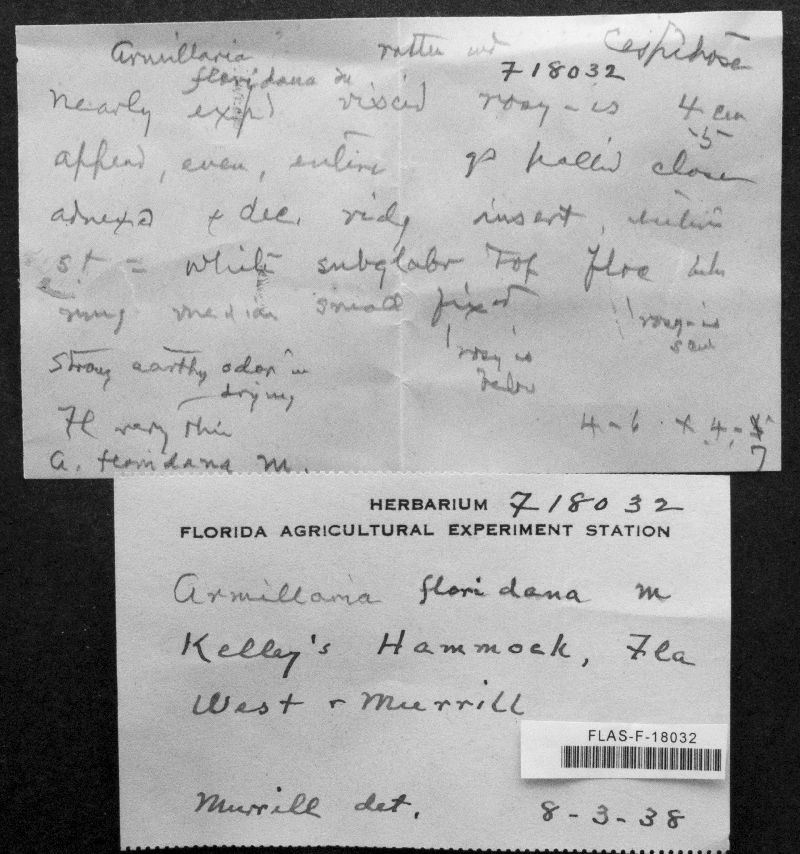 Armillaria rotten wd Cespitose
floridana M F18032
Nearly exp'd viscid rosy-is 4 cm
5
append, even, entire gs pallid close
adnexd + dec. ridg insert, entire
st = white subglabr Top floc
ring median small fixed
"rosy-is
"rosy is
below
Strong earthy odor in
drying
Fl very thin
4-6 x .4-
7
A. floridana M.
HERBARIUM F18032
FLORIDA AGRICULTURAL EXPERIMENT STATION
Armillaria floridana M
Kelley's Hammock, Fla
West + Murrill
FLAS-F-18032
Murrill det. 8-3-38